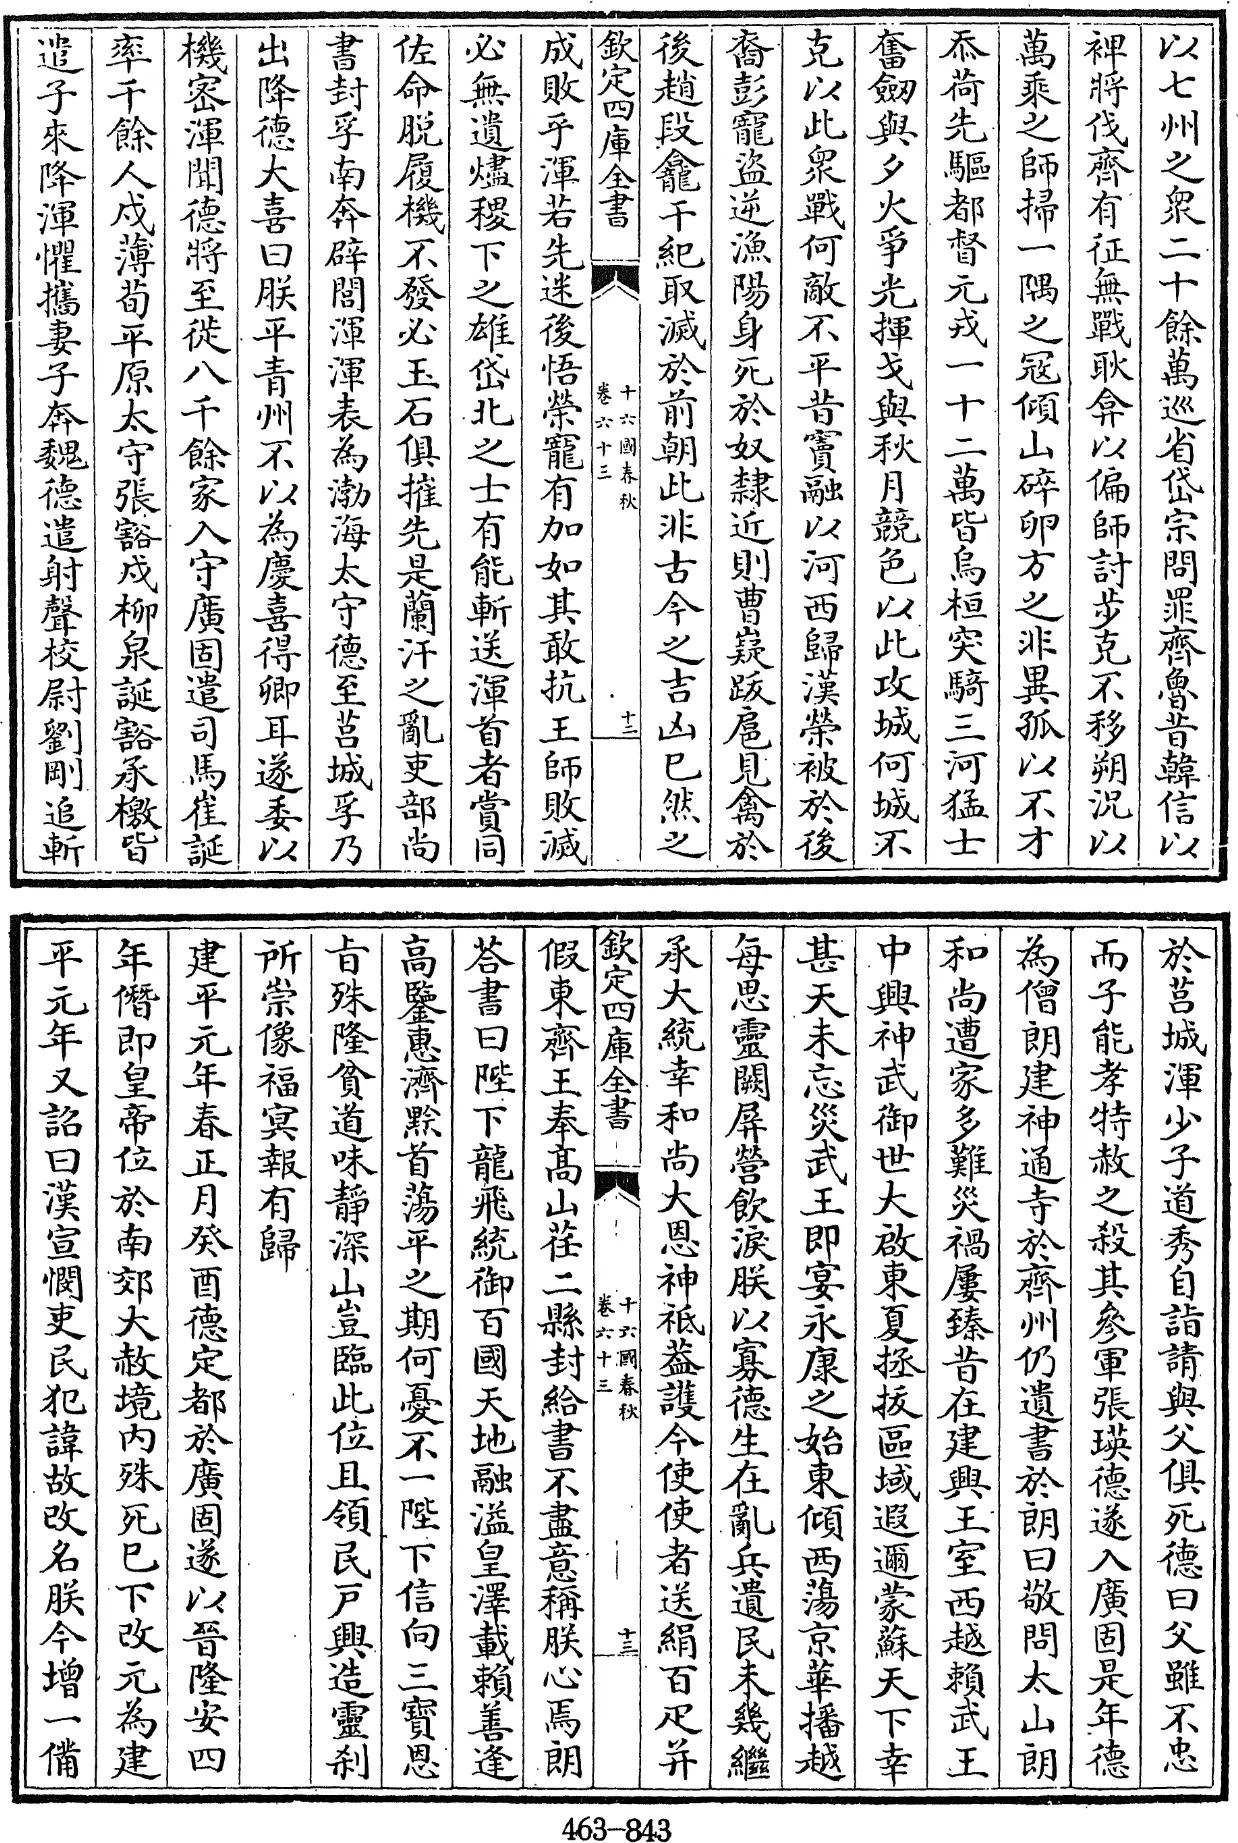 以七州之衆二十餘萬巡省岱宗問罪齊魯昔韓信以
裨將伐齊有征無戰耿弇以偏師討步克不移朔況以
萬乘之師掃一隅之冦傾山碎卵方之非異孤以不才
忝荷先驅都督元戎一十二萬皆烏桓突騎三河猛士
奮劒與夕火爭光揮戈與秋月競色以此攻城何城不
克以此衆戰何敵不平昔竇融以河西歸漢榮被於後
裔彭寵盜逆漁陽身死於奴隸近則曹嶷跋扈見禽於
後趙段龕干紀取滅於前朝此非古今之吉凶已然之
欽定四庫全書
十六國春秋
卷六十三
十二
成敗乎渾若先迷後悟榮寵有加如其敢抗王師敗滅
必無遺燼稷下之雄岱北之士有能斬送渾首者賞同
佐命脱履機不發必玉石俱摧先是蘭汗之亂吏部尚
書封孚南奔辟閭渾渾表為渤海太守德至莒城孚乃
出降德大喜曰朕平青州不以為慶喜得卿耳遂委以
機密渾聞德將至徙八千餘家入守廣固遣司馬崔誕
率千餘人戍薄荀平原太守張豁戍柳泉誕豁承檄皆
遣子來降渾懼攜妻子奔魏德遣射聲校尉劉剛追斬
於莒城渾少子道秀自詣請與父俱死德曰父雖不忠
而子能孝特赦之殺其參軍張瑛德遂入廣固是年德
為僧朗建神通寺於齊州仍遺書於朗曰敬問太山朗
和尚遭家多難災禍屢臻昔在建興王室西越賴武王
中興神武御世大啟東夏拯拔區域遐邇蒙蘇天下幸
甚天未忘災武王即宴永康之始東傾西蕩京華播越
每思靈闕屏營飲淚朕以寡德生在亂兵遺民未幾繼
承大統幸和尚大恩神祇蓋護今使使者送絹百疋并
欽定四庫全書
十六國春秋
卷六十三
十三
假東齊王奉高山茌二縣封給書不盡意稱朕心焉朗
荅書曰陛下龍飛統御百國天地融溢皇澤載賴善逢
高鑒惠濟黔首蕩平之期何憂不一陛下信向三寶恩
㫖殊隆貧道味靜深山豈臨此位且領民户興造靈刹
所崇像福冥報有歸
建平元年春正月癸酉德定都於廣固遂以晉隆安四
年僭即皇帝位於南郊大赦境内殊死已下改元為建
平元年又詔曰漢宣憫吏民犯諱故改名朕今增一備
463-843